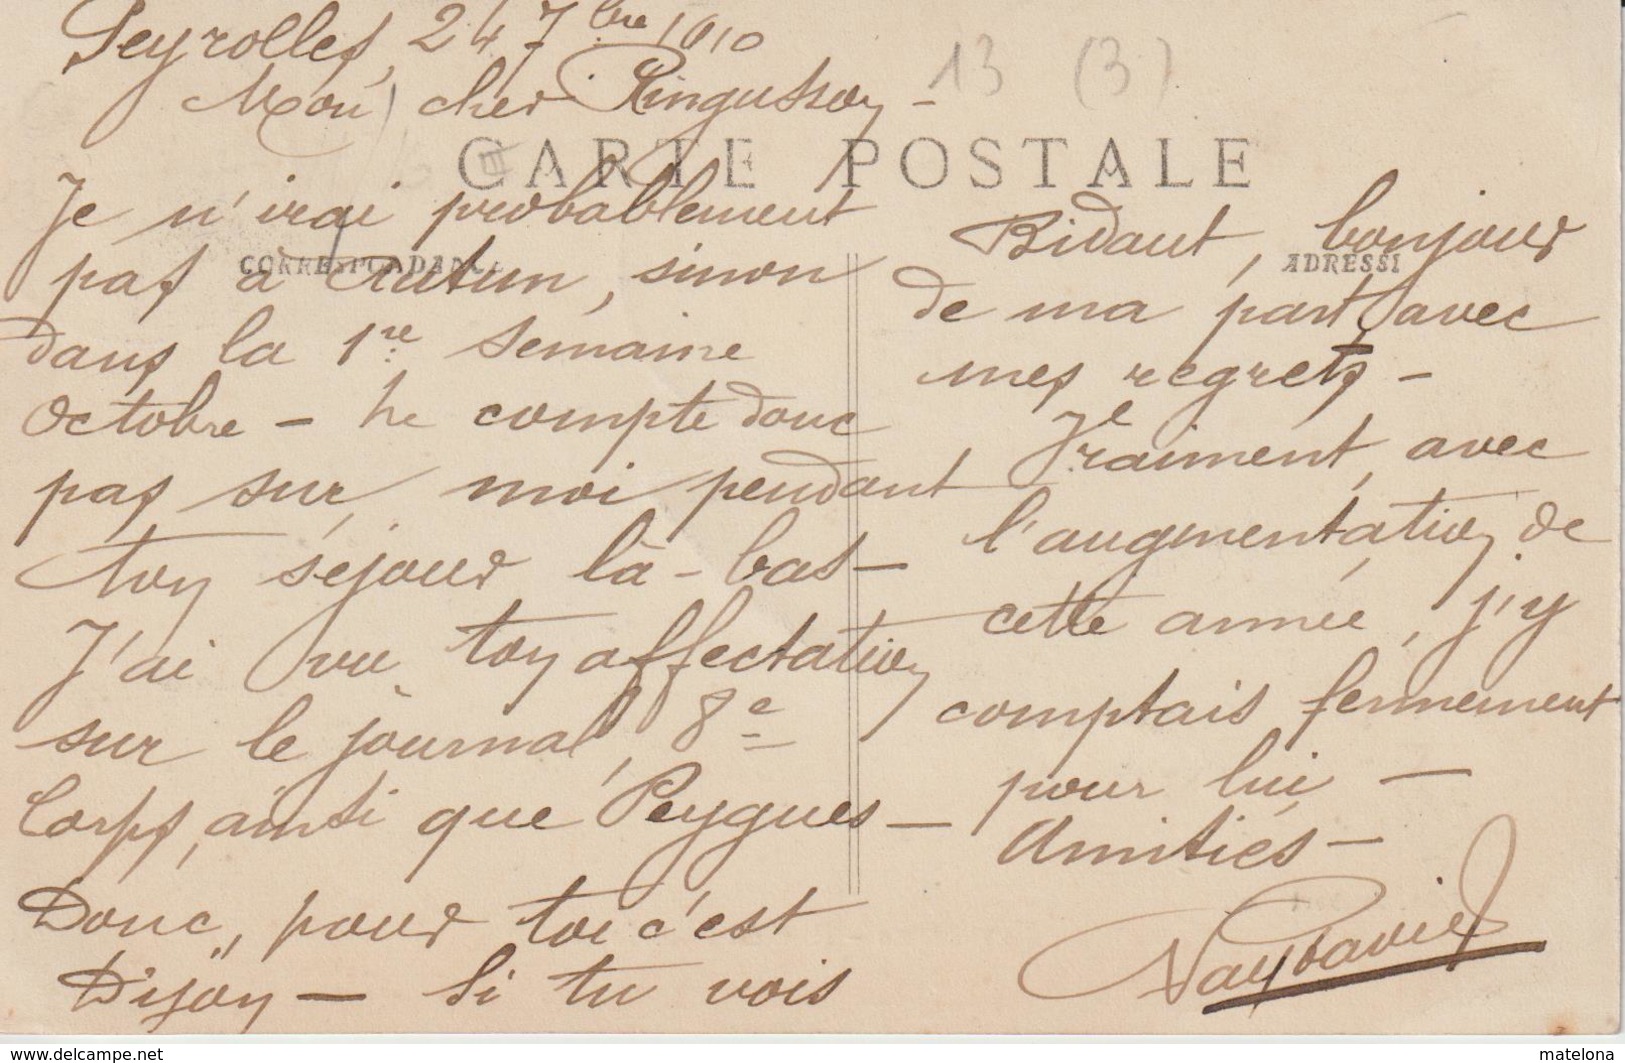 Peyrolles, 24 7bre 1910
13 (3)
Mon cher Pingusson -
CARTE POSTALE
CORRESPONDANCE
ADRESSE
Je n'irai probablement
pas à Autun, sinon
dans la 1re semaine
Octobre - Ne compte donc
pas sur moi pendant
ton séjour là-bas -
J'ai vu ton affectation
sur le journal, 8e
Corps, ainsi que Peygues -
Donc, pour toi c'est
Dijon - Si tu vois
Bidaut, bonjour
de ma part avec
mes regrets -
Vraiment, avec
l'augmentation de
cette année, j'y
comptais fermement
pour lui -
Amitiés -
www.delcampe.net
matelona